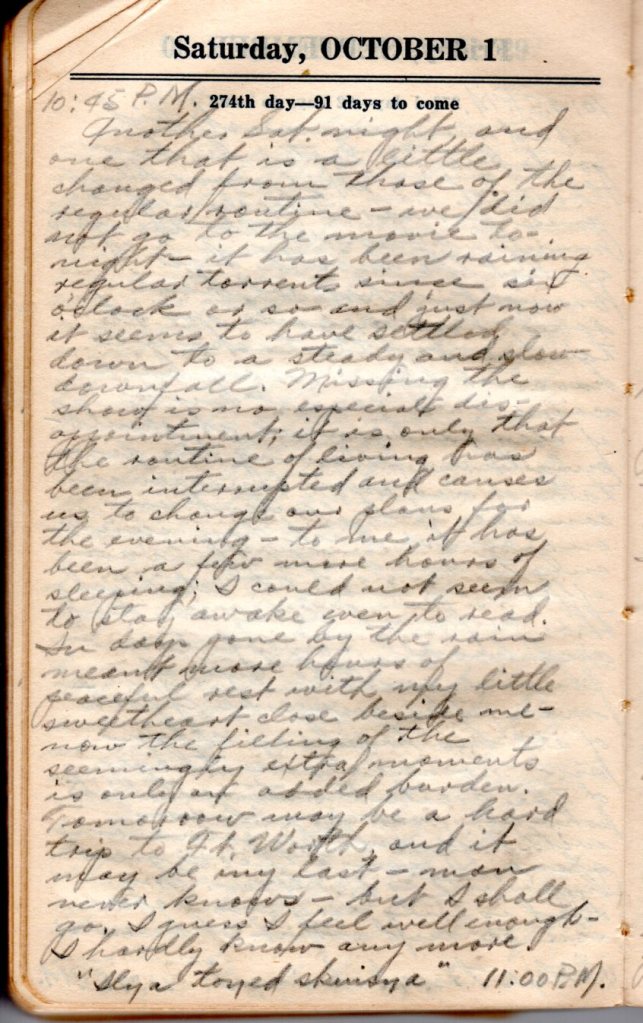 Saturday, OCTOBER 1
10:45 P.M.
274th day—91 days to come
Another Sat. night, and
one that is a little
changed from those of the
regular routine - we did
not go to the movie to-
night - it has been raining
regular torrents since six
o'clock or so and just now
it seems to have settled
down to a steady and slow
downfall. Missing the
show is no especial dis-
appointment; it is only that
the routine of living has
been interrupted and causes
us to change our plans for
the evening - to me it has
been a few more hours of
sleeping; I could not seem
to stay awake even to read.
In days gone by the rain
meant more hours of
peaceful rest with my little
sweetheart close beside me -
now the filling of the
seemingly extra moments
is only an added burden.
Tomorrow may be a hard
trip to Ft. Worth, and it
may be my last - man
never knows - but I shall
go. I guess I feel well enough -
I hardly know any more.
" toyed " 11:00 P.M.